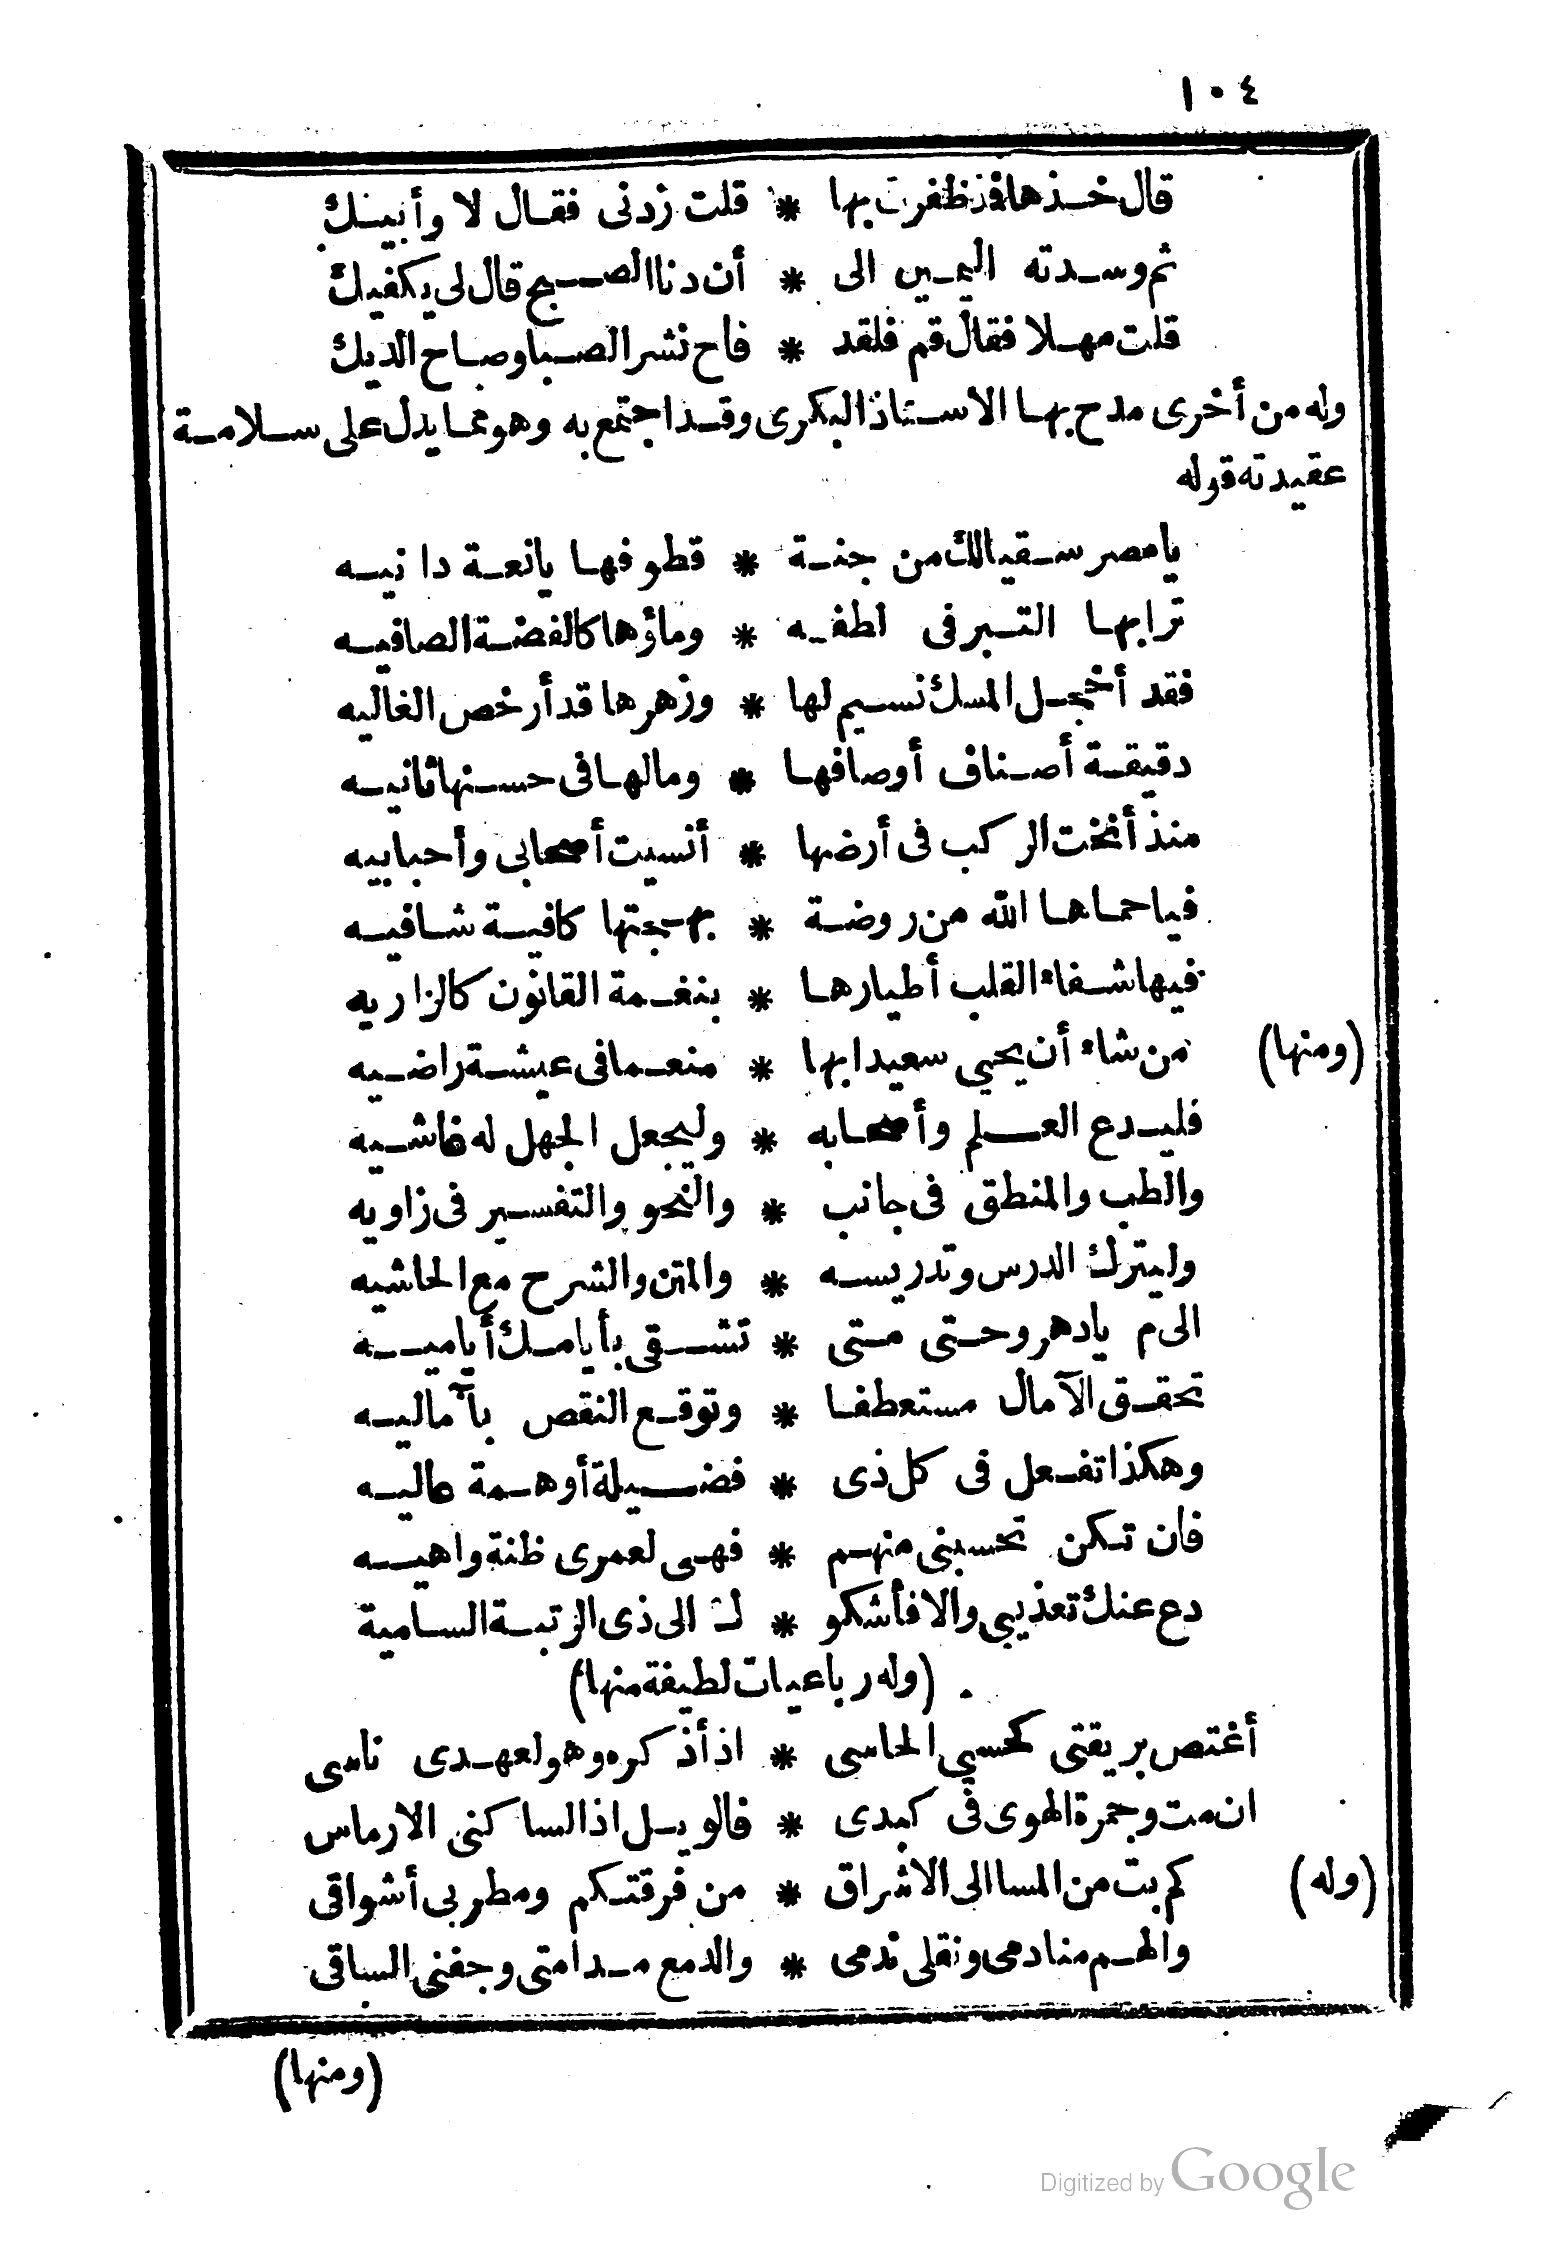 ١٠٤
قال خذها فذ ظفرت بها * قلت زدنى فقال لا وأبيك
ثم وسدته اليمين الى * أن دنا الصبح قال لى يكفيك
قلت مهلا فقال قم فلقد * فاح نشر الصبا وصاح الديك
وله من أخرى مدح بها الاستاذ البكرى وقد اجتمع به وهو مما يدل على سلامة
عقيدته قوله
يا مصر سقيا لك من جنة * قطوفها يانعة دانيه
ترابها التبر فى لطفه * وماؤها كالفضة الصافيه
فقد أخجل المسك نسيم لها * وزهرها قد أرخص الغاليه
دقيقة أصناف أوصافها * ومالها فى حسنها ثانيه
منذ أنخت الركب فى أرضها * أنسيت أصحابى وأحبابيه
فيا حماها الله من روضة * بهجتها كافية شافيه
فيها شفاء القلب أطيارها * بنغمة القانون كالزاريه
(ومنها) من شاء أن يحيى سعيدا بها * منعما فى عيشة راضيه
فليدع العلم وأصحابه * وليجعل الجهل له غاشيه
والطب والمنطق فى جانب * والنحو والتفسير فى زاويه
وليترك الدرس وتدريسه * والمتن والشرح مع الحاشيه
الى م يادهر وحتى متى * تشقى بأيامك أياميه
تحقق الآمال مستعطفا * وتوقع النقص بآماليه
وهكذا تفعل فى كل ذى * فضيلة أو همة عاليه
فان تكن تحسبنى منهم * فهى لعمرى ظنة واهيه
دع عنك تعذيبى والا فأشكو * ك الى ذى الرتبة السامية
(وله رباعيات لطيفة منها)
أغتص بريقتى كحسى الحاسى * اذ أذكره وهو لعهدى ناسى
ان مت وجمرة الهوى فى كبدى * فالويل اذا لساكنى الارماس
(وله) كم بت من المسا الى الاشراق * من فرقتكم ومطربى أشواقى
والهم منادمى ونقلى ندمى * والدمع مدامتى وجفنى الساقى
(ومنها)
Digitized by Google